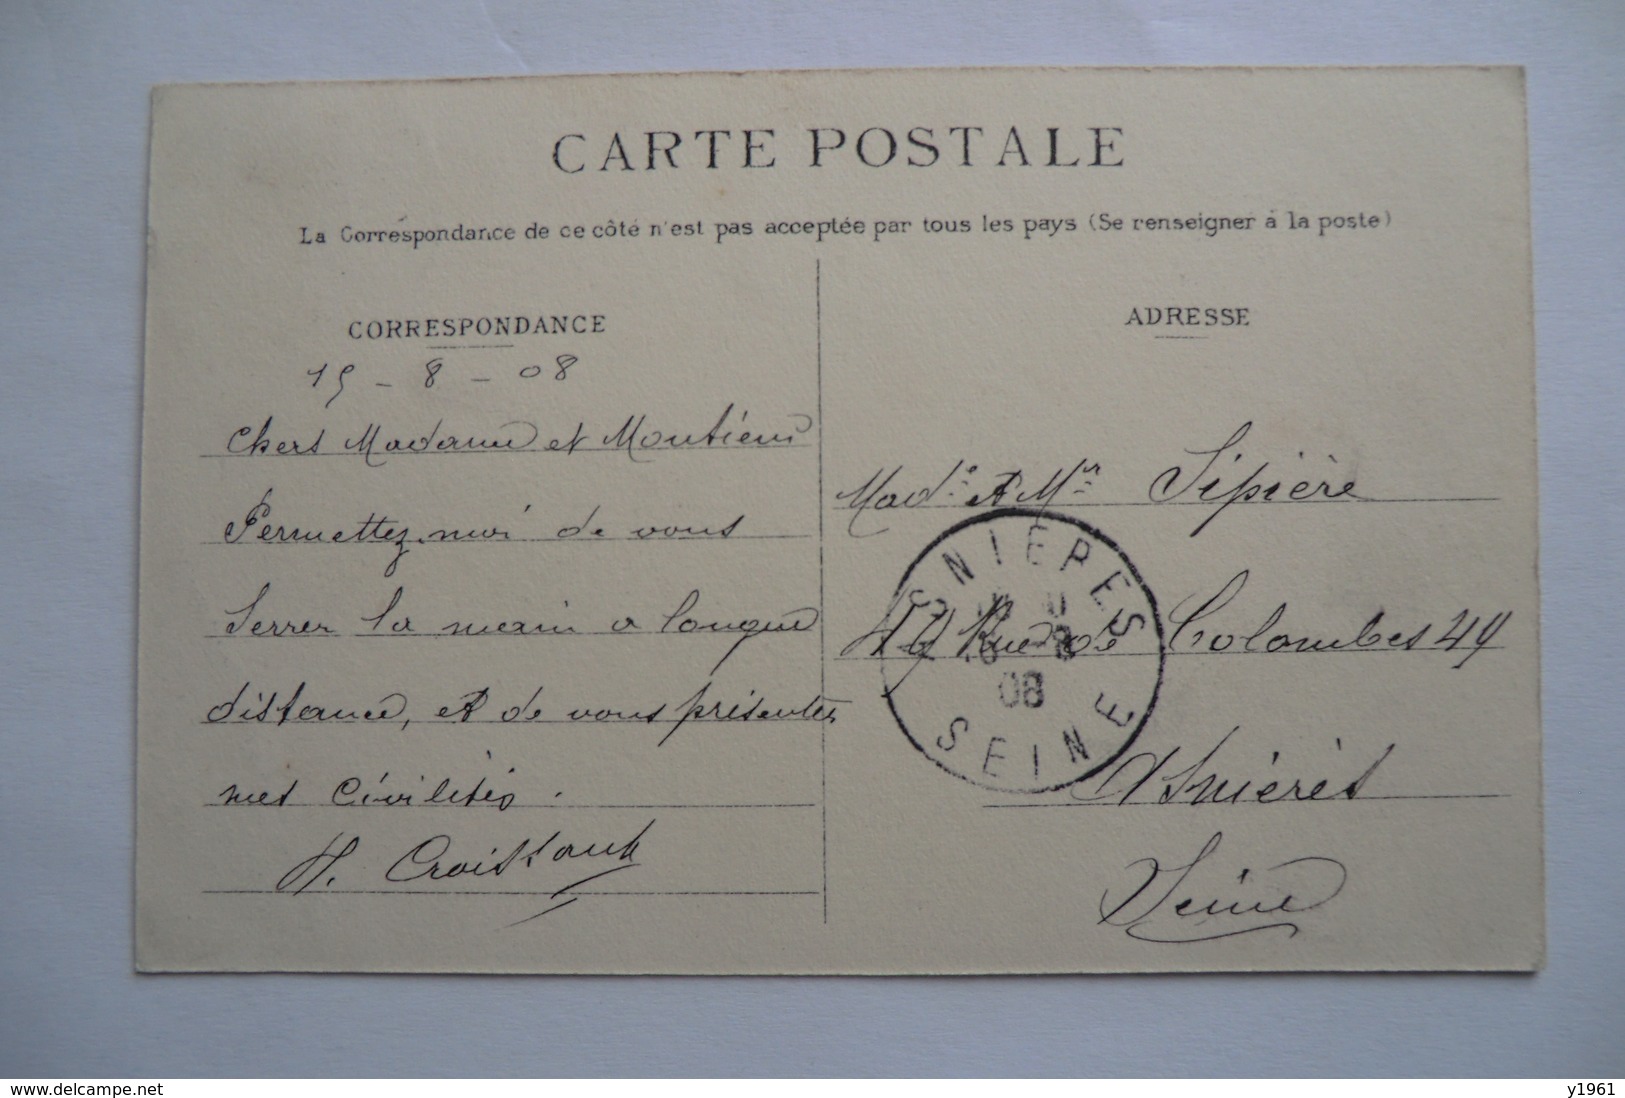 CARTE POSTALE
La Correspondance de ce côté n'est pas acceptée par tous les pays (Se renseigner à la poste)
CORRESPONDANCE
15 - 8 - 08
Chers Madame et Monsieur
Permettez-moi de vous
Serrer la main a longue
distance, et de vous présenter
mes Civilités.
H. Croissant
ADRESSE
Mad.e et Mr Sipière
49 Rue de Colombes 49
Asnières
Seine
ASNIERES
8
08
SEINE
www.delcampe.net
y1961